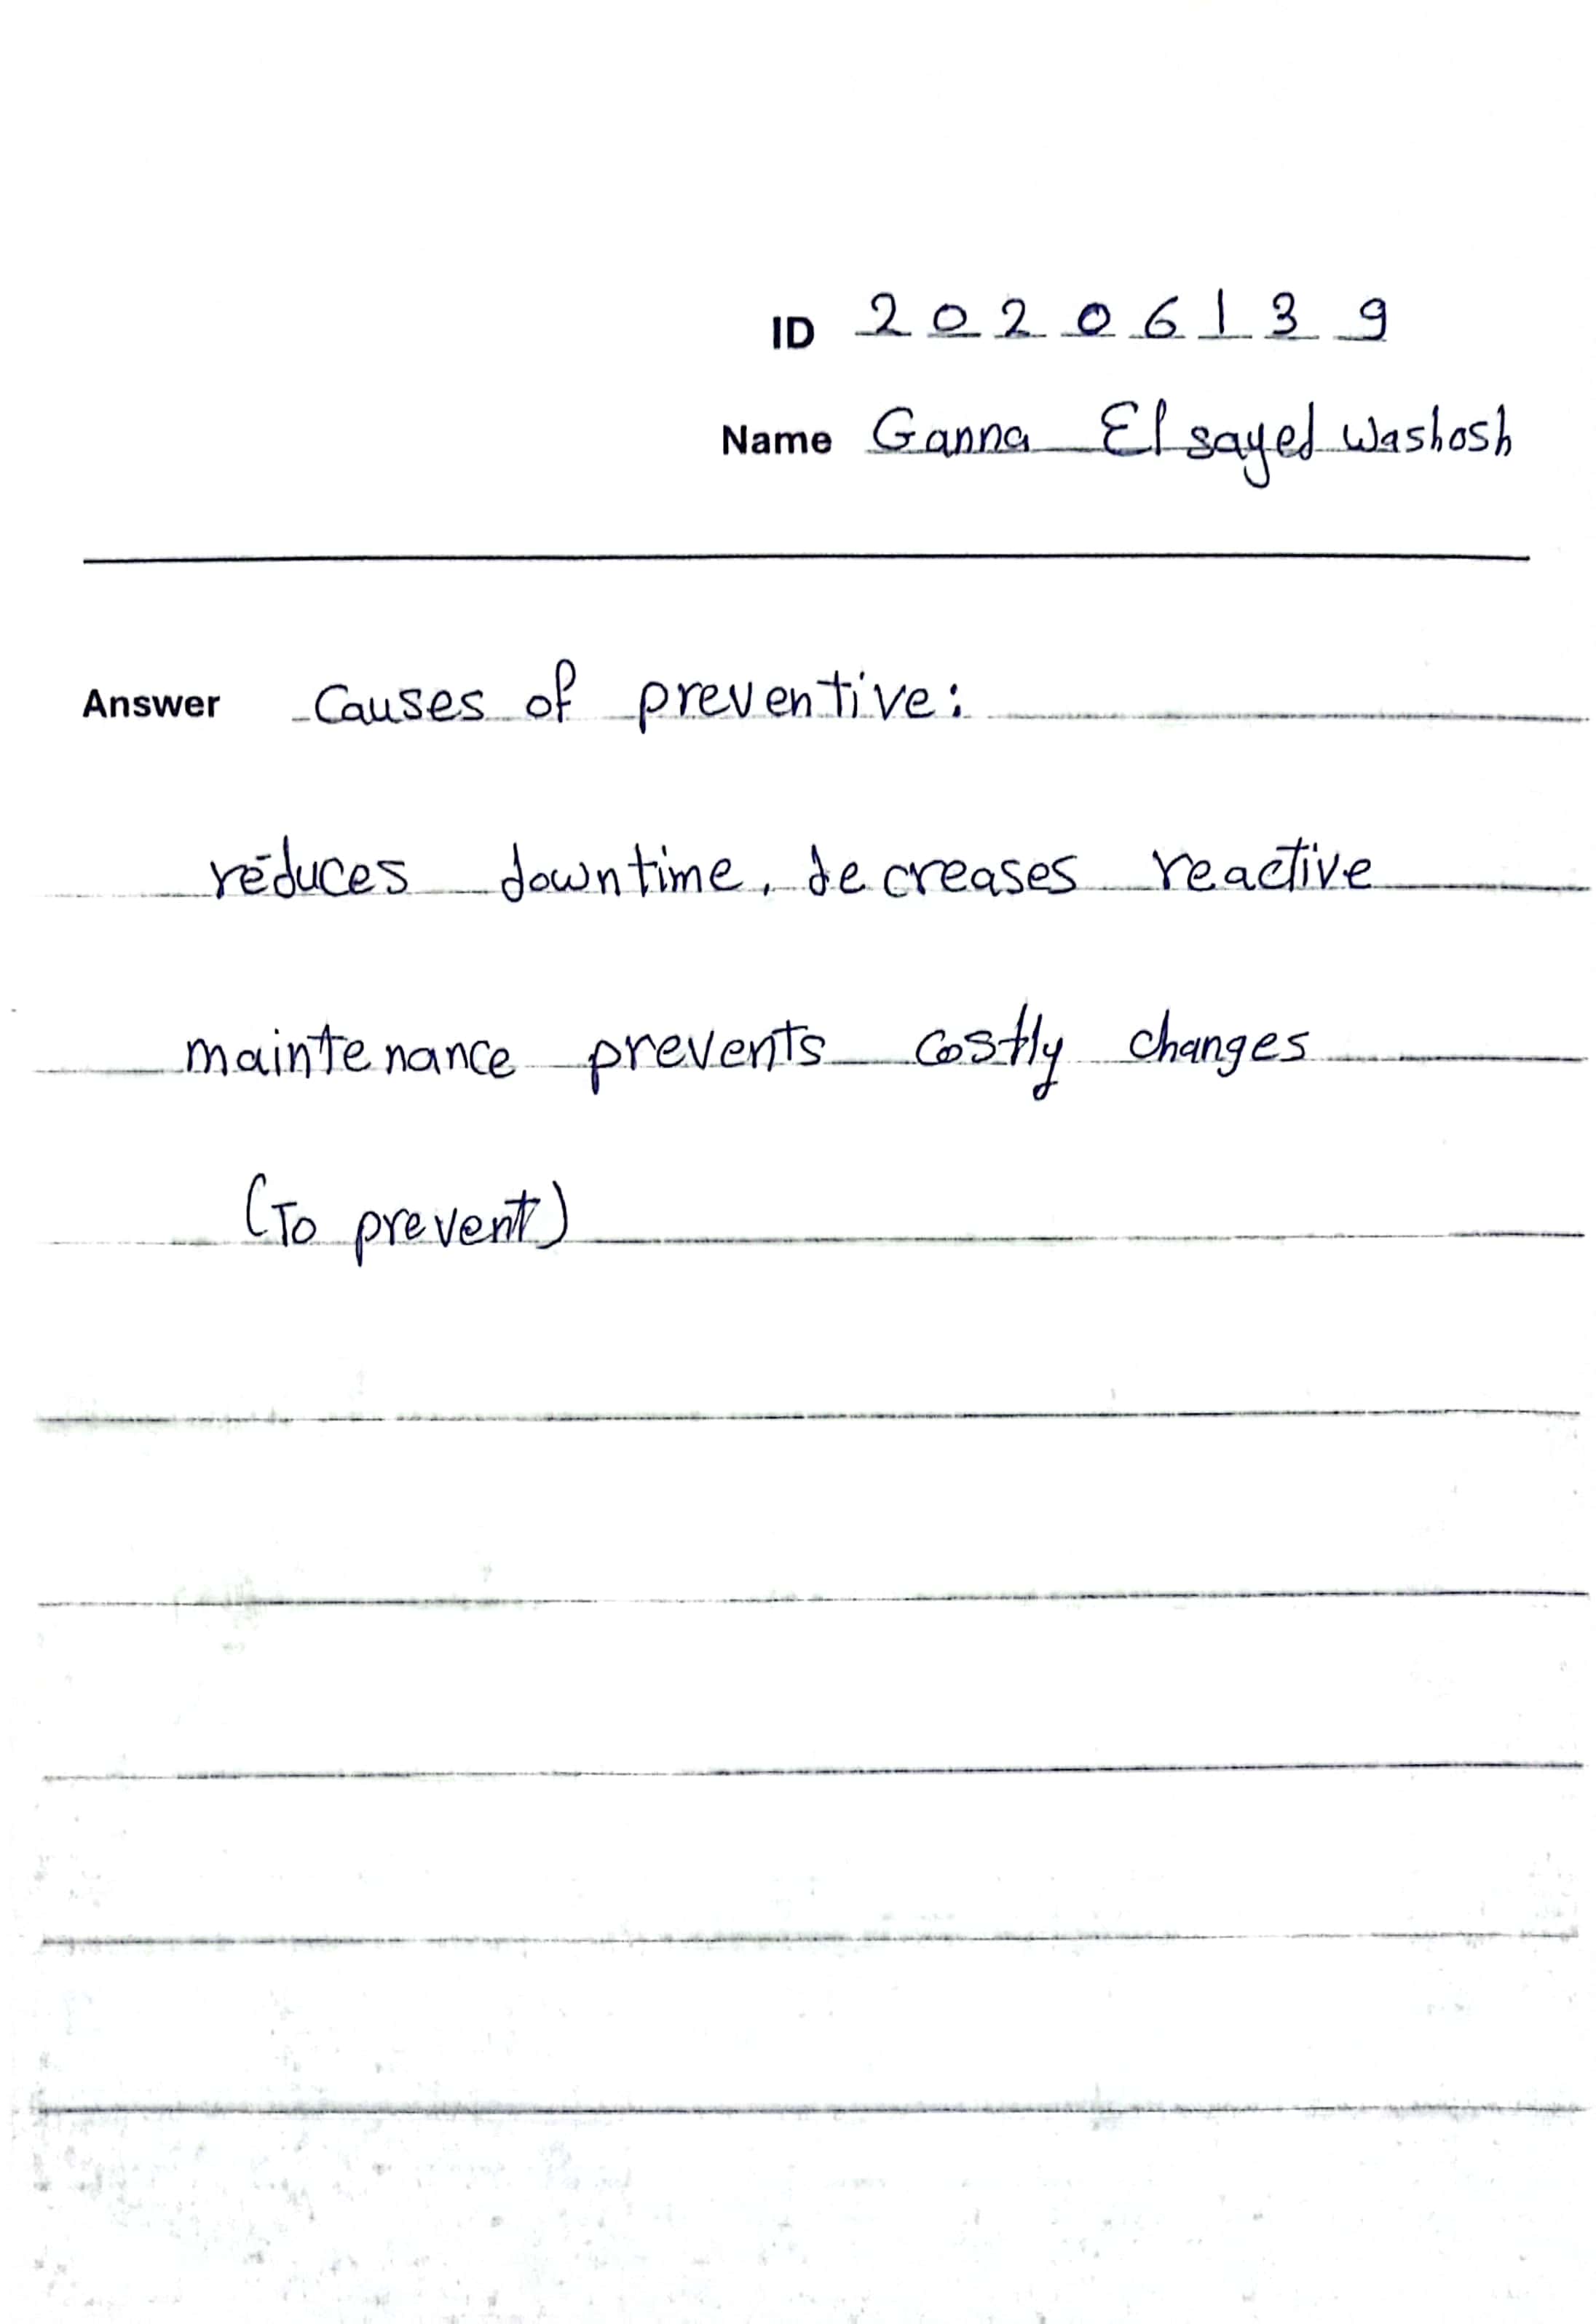 ID 20206139
Name Ganna Elsayed Washosh
Answer Causes of preventive:
reduces downtime, decreases reactive
maintenance prevents costly changes
(To prevent)